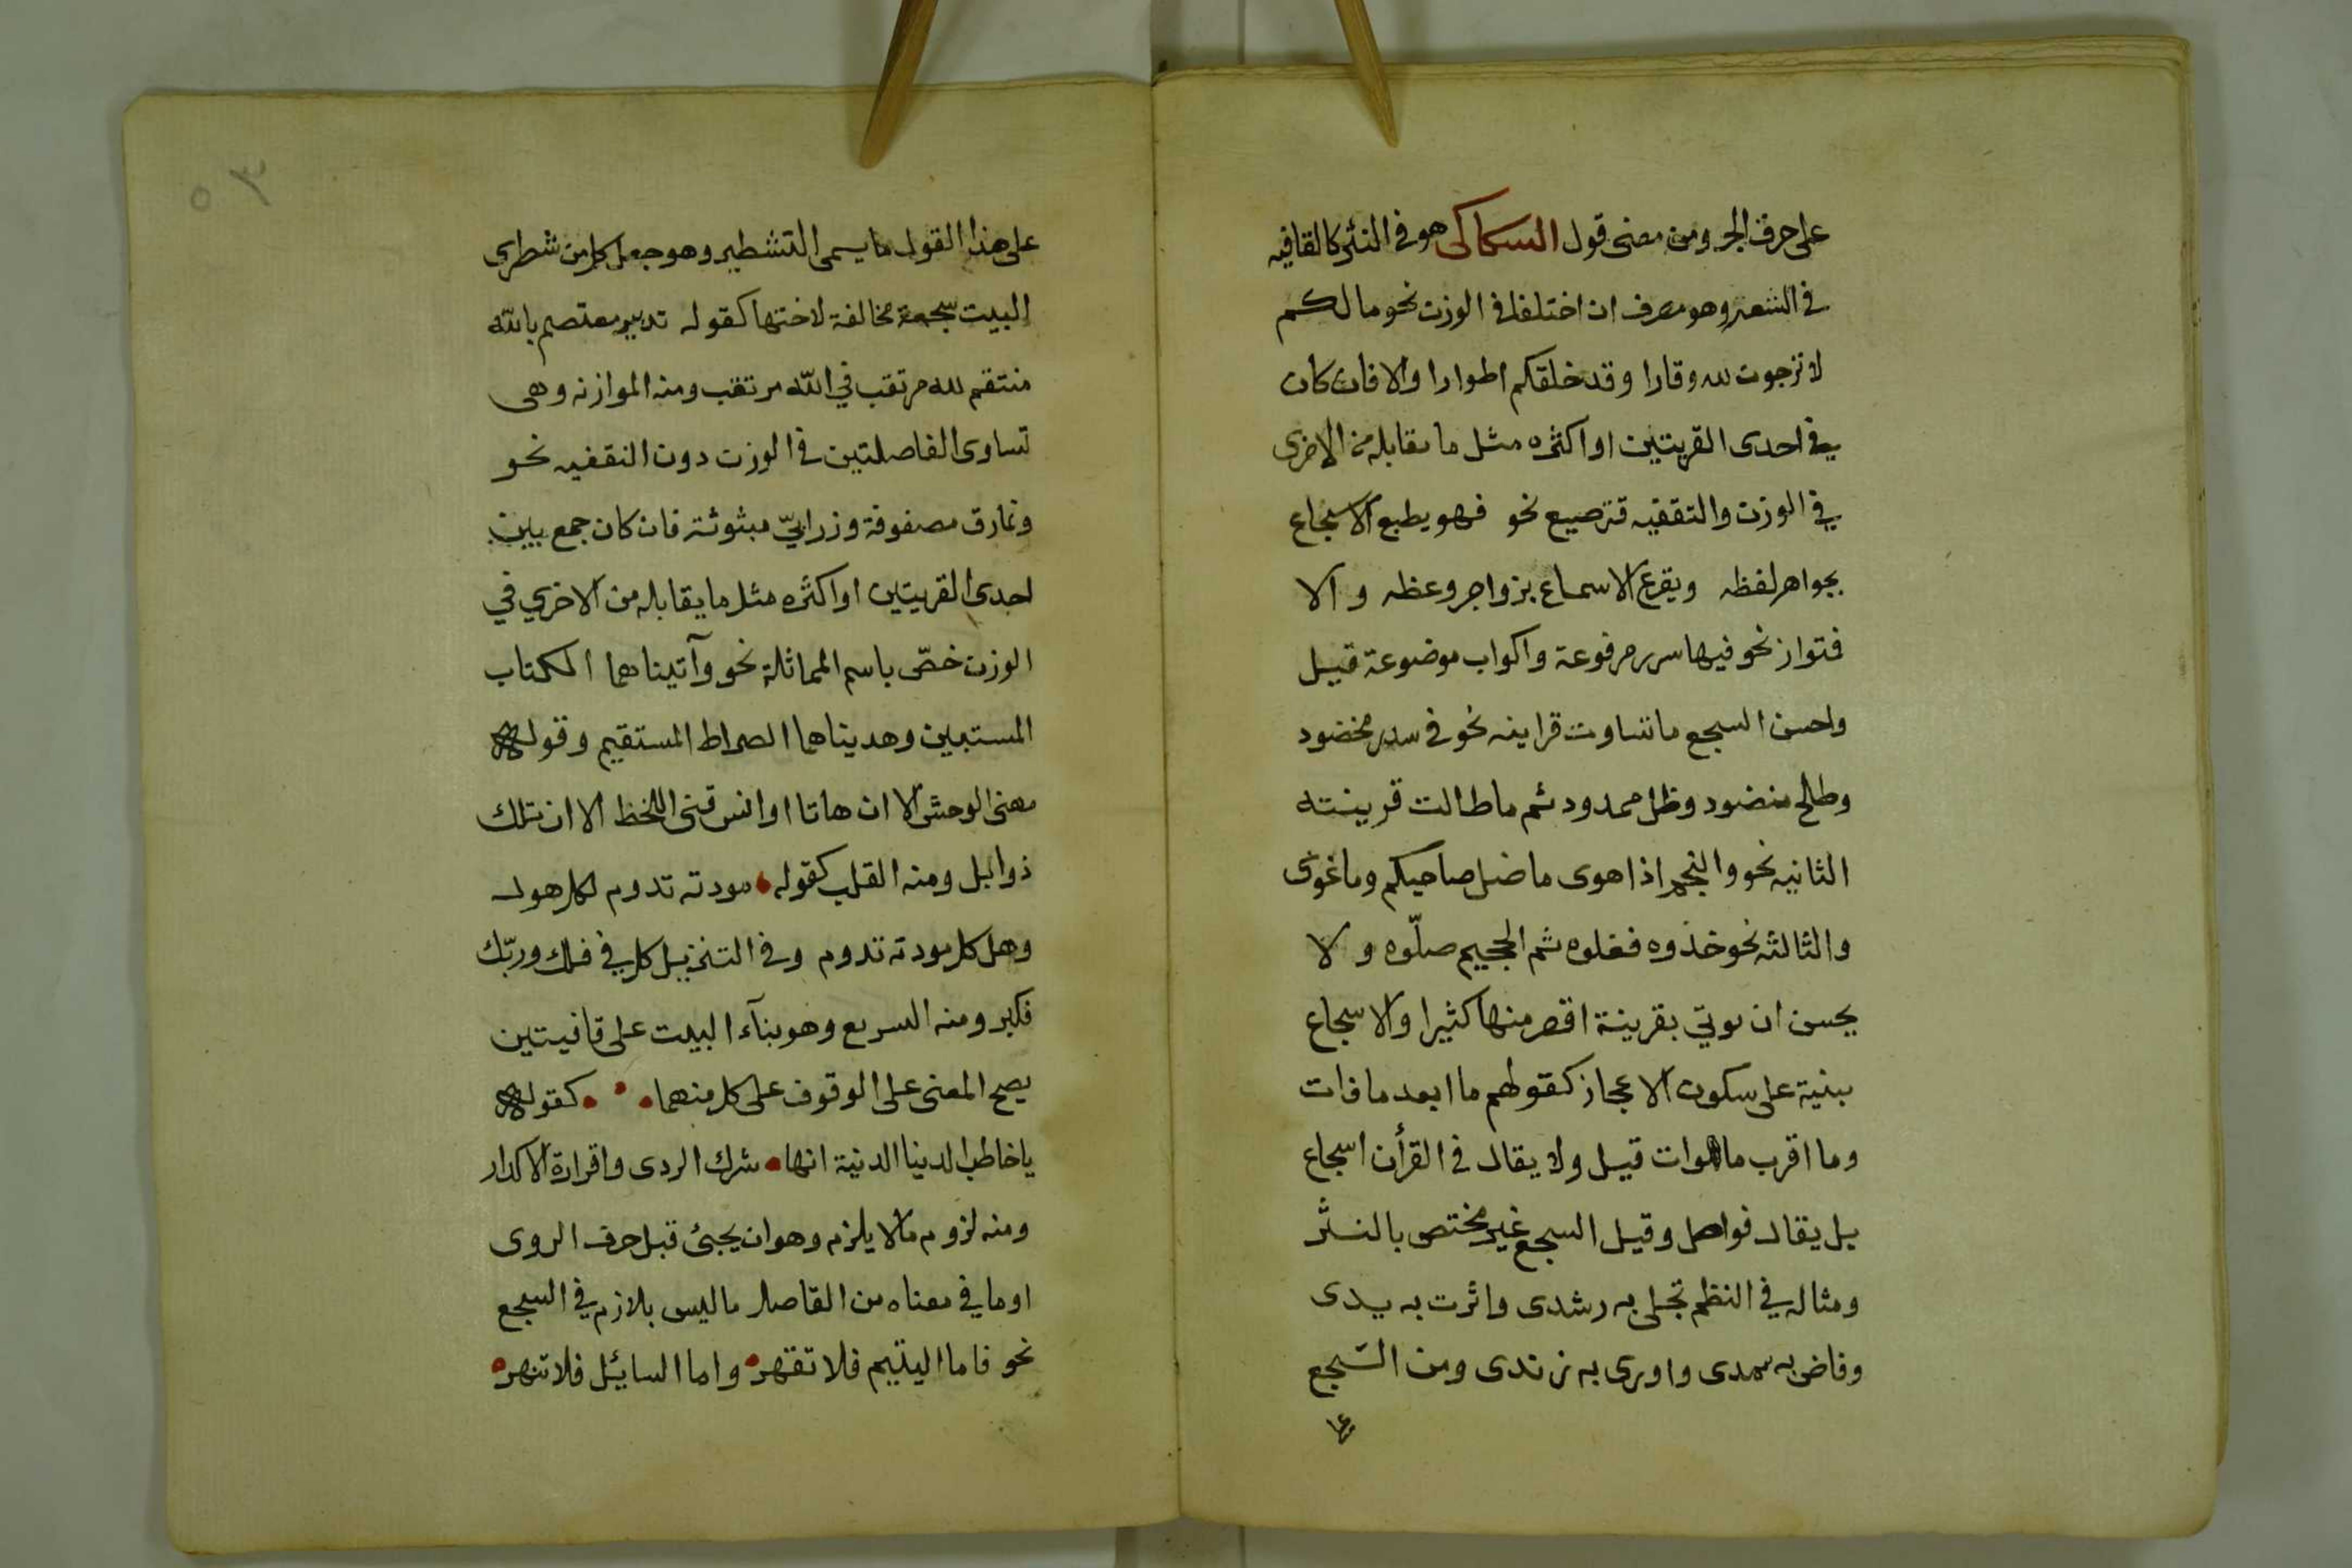 على حرف الجر ومن معنى قول السكاكى هو فى النثر كالقافيه
فى الشعر وهو مصرف ان اختلفا فى الوزن نحو مالكم
لا ترجون لله وقارا وقد خلقكم اطوارا والا فان كان
في احدى القرينتين او اكثره مثل ما يقابله من الاخرى
في الوزن والتقفيه فترصيع نحو فهو يطبع الاسجاع
بجواهر لفظه ويقرع الاسماع بزواجر وعظه والا
فتواز نحو فيها سرر مرفوعة واكواب موضوعة قيل
واحسن السجع ما تساوت قراينه نحو فى سدر مخضود
وطلح منضود وظل ممدود ثم ما طالت قرينته
الثانيه نحو والنجم اذا هوى ما ضل صاحبكم وما غوى
والثالثه نحو خذوه فغلوه ثم الجحيم صلّوه ولا
يحسن ان يوتي بقرينة اقصر منها كثيرا والاسجاع
مبنية على سكون الاعجاز كقولهم ما ابعد ما فات
وما اقرب ما هوات قيل ولا يقال فى القرأن اسجاع
بل يقال فواصل وقيل السجع غير مختص بالنثر
ومثاله في النظم تجلى به رشدى واثرت به يدى
وفاض به ثمدى واورى به زندى ومن السّجع
على
٥٣
على هذا القول ما يسمى التشطير وهو جعل كل من شطرى
البيت سجعة مخالفة لاختها كقوله تدبير معتصم بالله
منتقم لله مرتقب في الله مرتغب ومنه الموازنه وهى
تساوى الفاصلتين فى الوزن دون التقفيه نحو
ونمارق مصفوفة وزرابيّ مبثوثة فان كان جمع بين
احدى القرينتين او اكثره مثل ما يقابله من الاخري في
الوزن خصّ باسم المماثلة نحو وآتيناهما الكتاب
المستبين وهديناهما الصراط المستقيم وقوله
مهى الوحش الا ان هاتا اوانس قنى الخط الا ان تلك
ذوابل ومنه القلب كقوله مودته تدوم لكل هول
وهل كل مودته تدوم وفى التنزيل كل في فلك وربّك
فكبر ومنه السريع وهو بنآء البيت على قافيتين
يصح المعنى على الوقوف على كل منهما كقوله
يا خاطب الدنيا الدنية انها شرك الردى واقرارة الاكدار
ومنه لزوم مالا يلزم وهو ان يجئ قبل حرف الروى
او ما في معناه من الفاصله ما ليس بلازم في السجع
نحو فاما اليتيم فلا تقهر واما السائل فلا تنهر